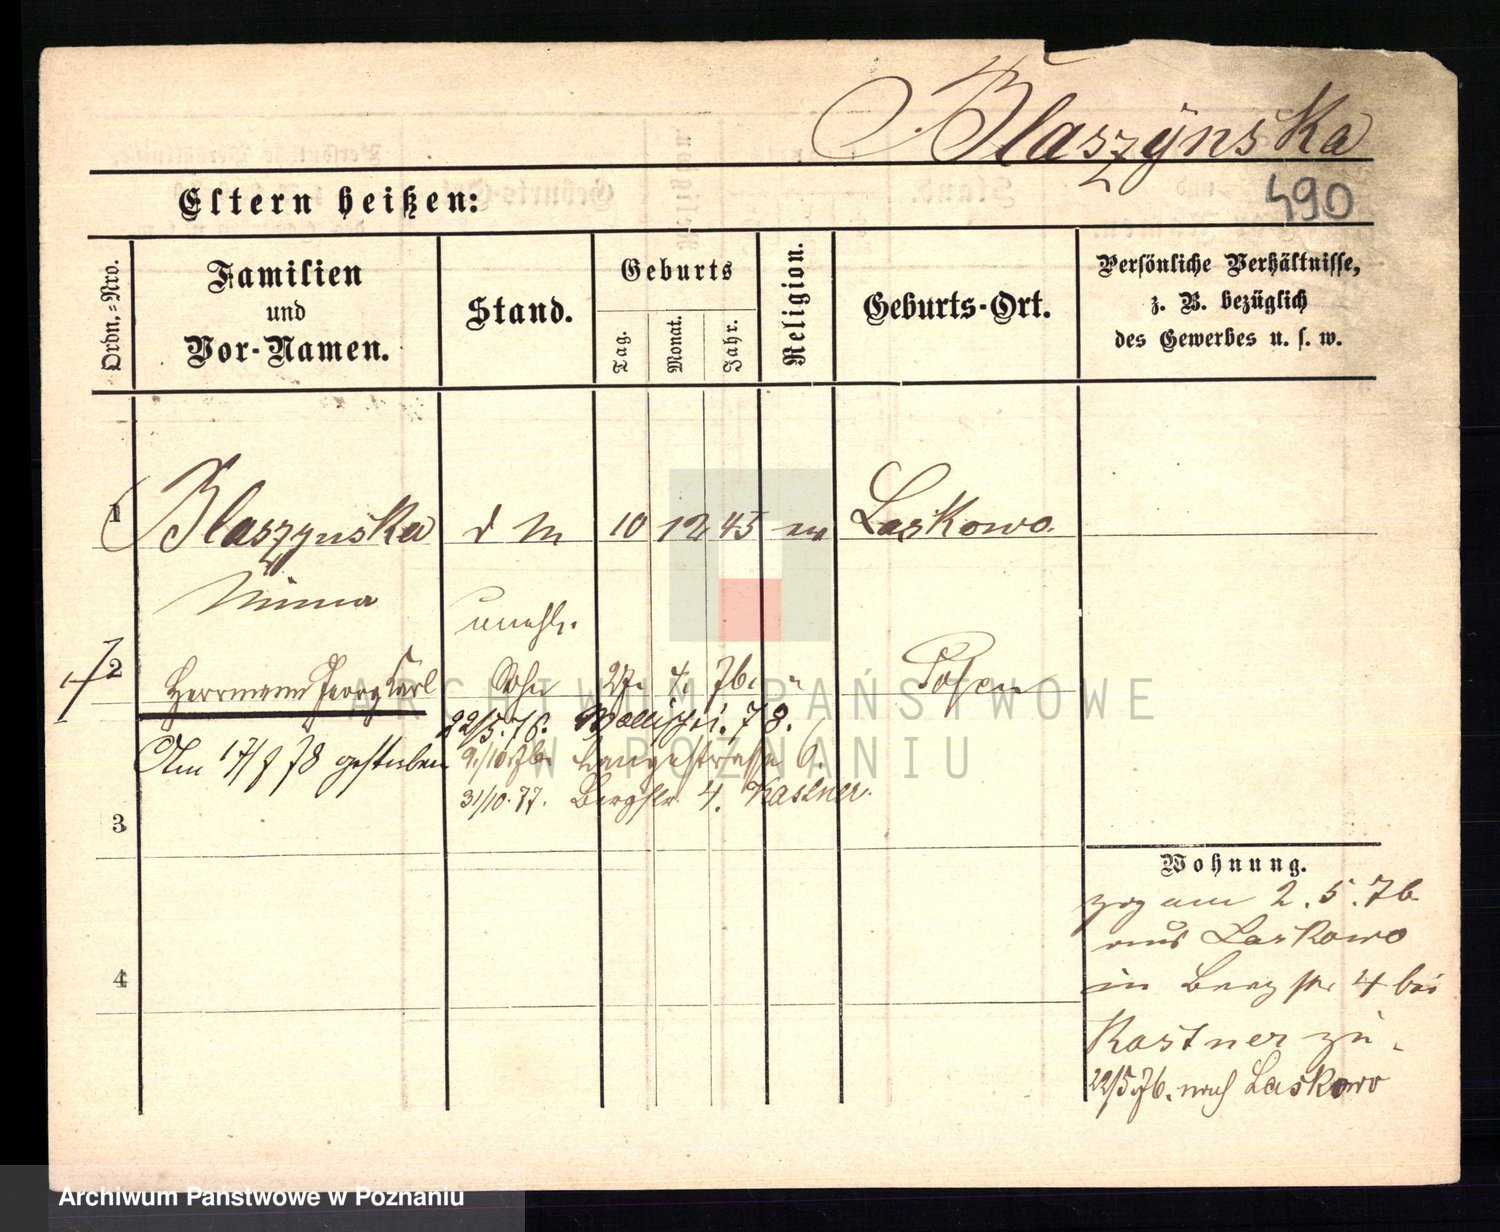 Blaszÿnska
490
Eltern heißen:
Ordn.-Nro.
Familien
und
Vor-Namen.
Stand.
Geburts
Tag.
Monat.
Jahr.
Religion.
Geburts-Ort.
Persönliche Verhältnisse,
z. B. bezüglich
des Gewerbes u. s. w.
1 Blaszynska d M 10 12 45 Laskowo.
Minna
unehl.
2 Herrmann Georg Karl Sohn 27. 4. 76. " Posen
22/5.76. Wallischei. 78.
Am 17/ 78 gestorben
9./10. 76. Langestrasse 6.
31/10.77. Bergstr. 4. Kastner.
3
Wohnung.
zog am 2.5.76
aus Laskowo
4
in Bergstr 4 bei
Kastner zu.
22/5.76. nach Laskowo
ARCHIWUM PAŃSTWOWE
W POZNANIU
Archiwum Państwowe w Poznaniu